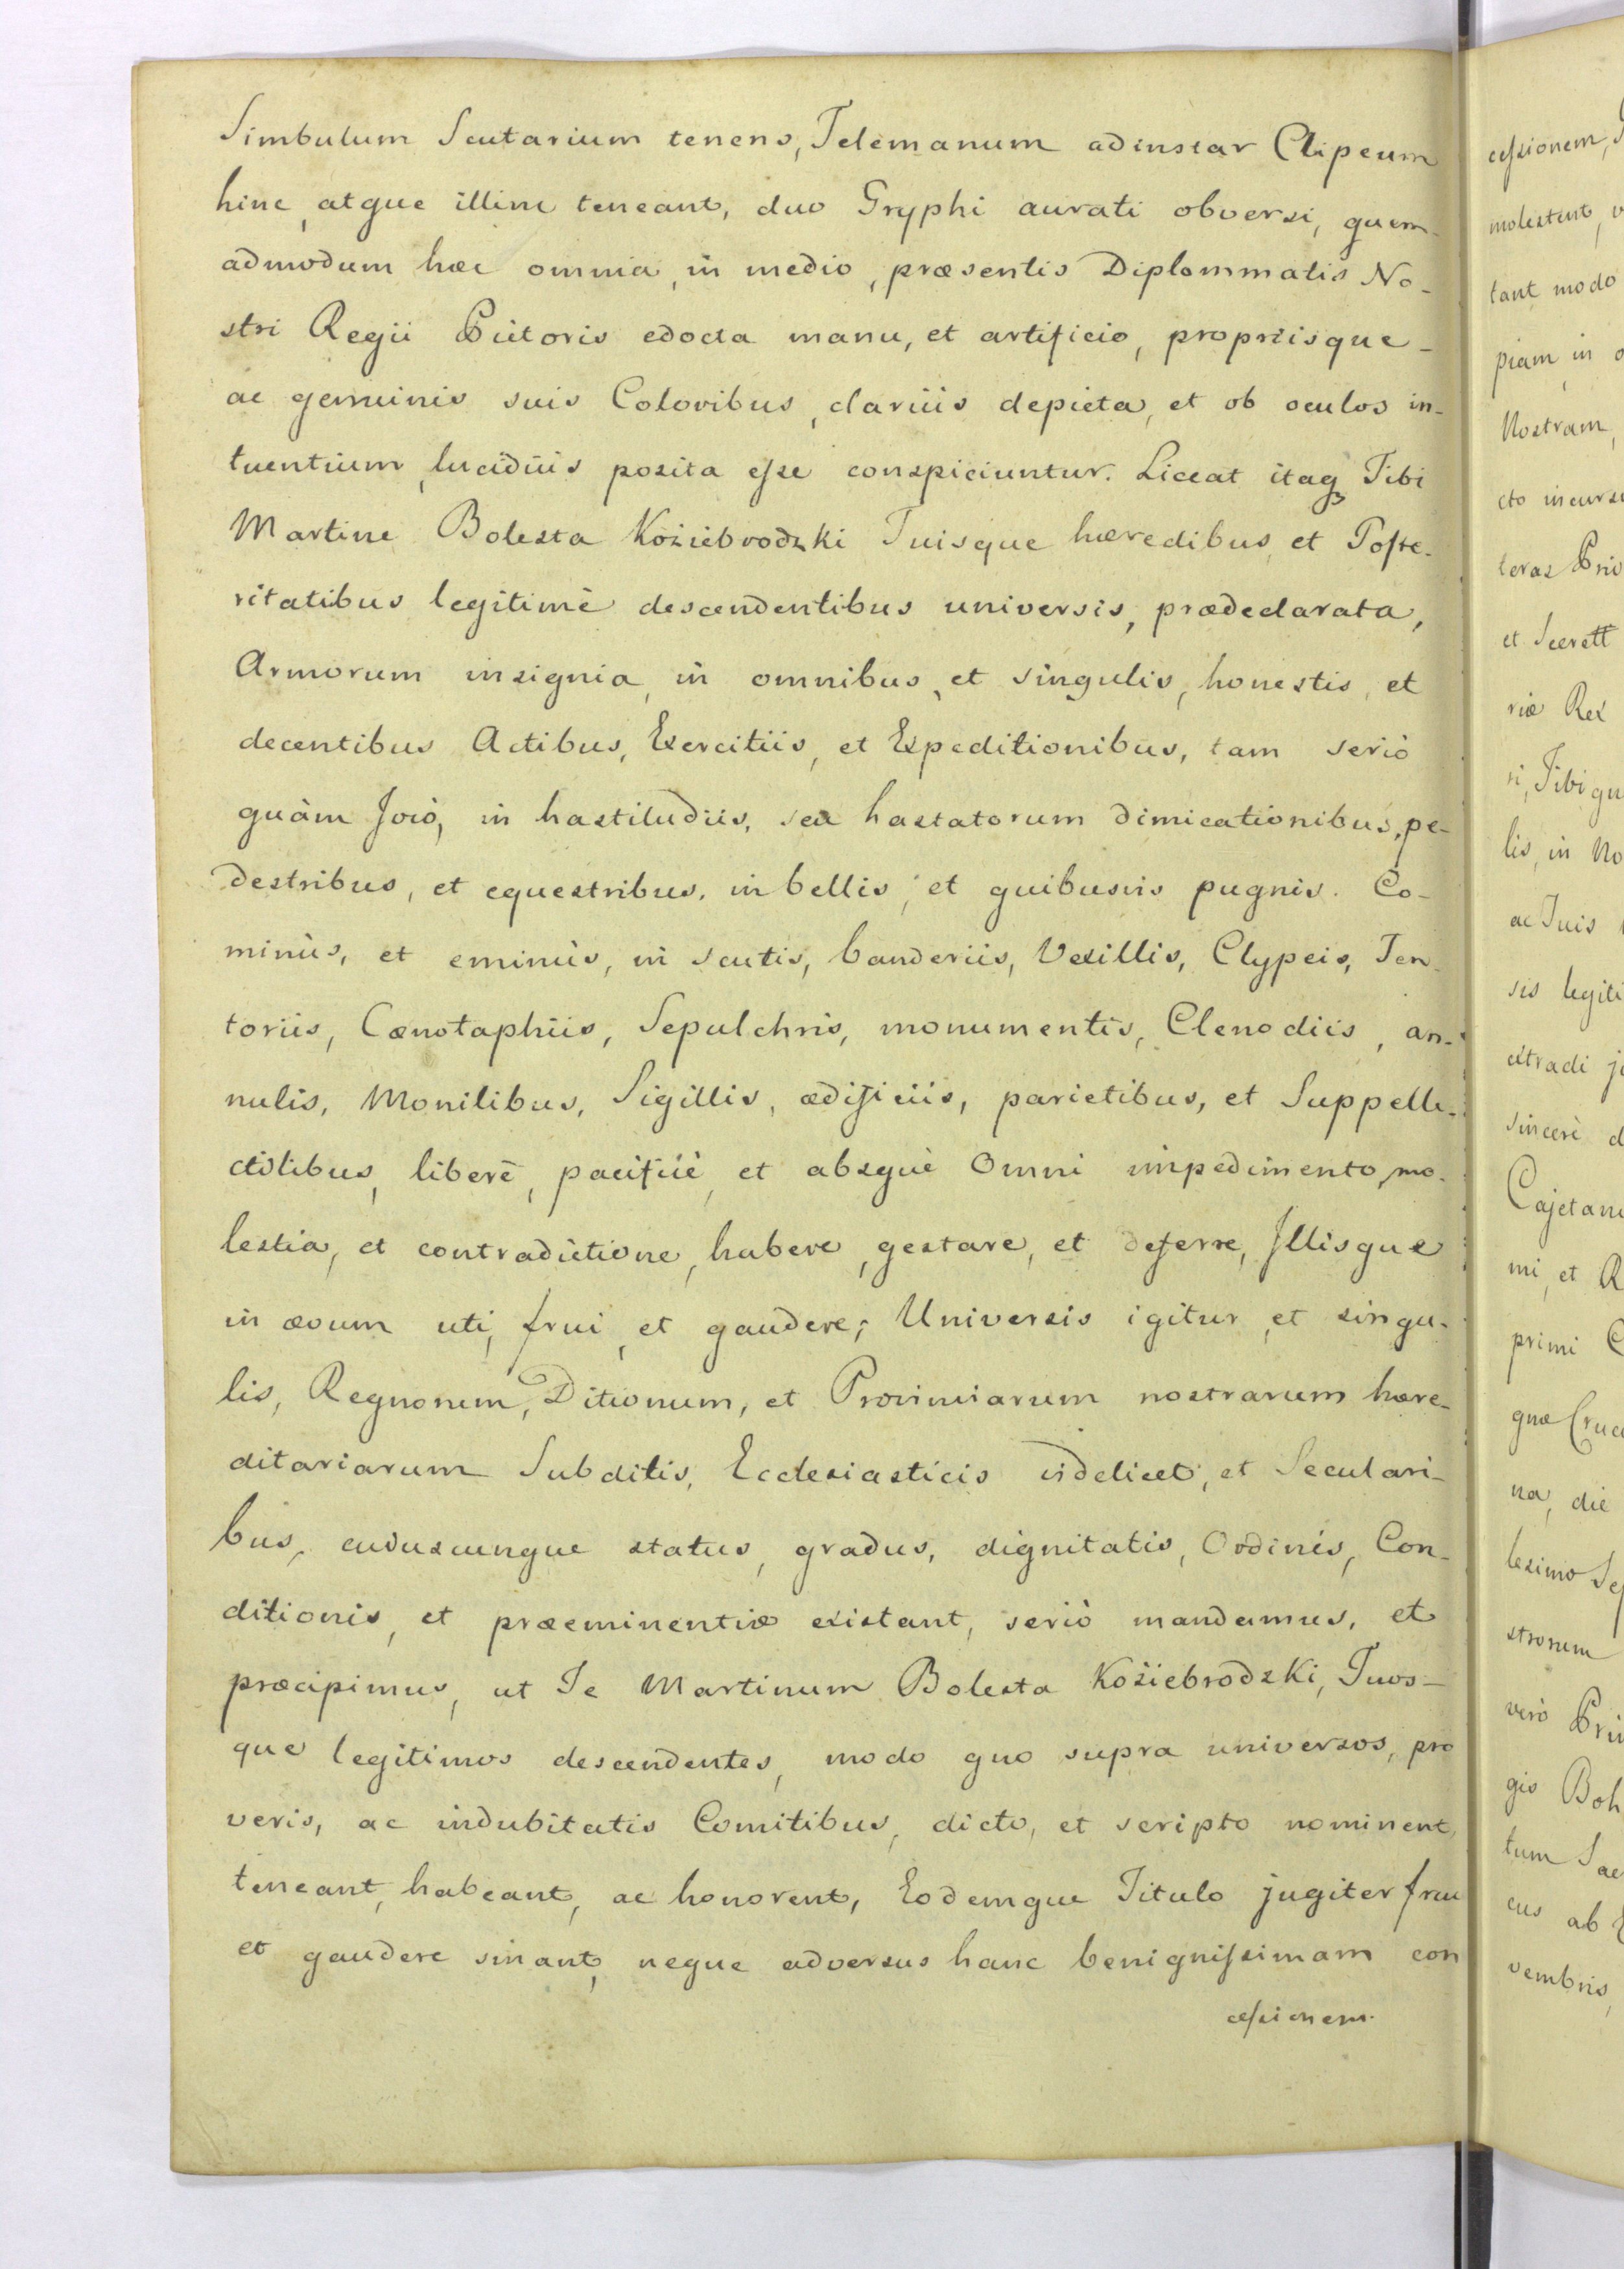 Simbulum Scutarium tenens, Telemanum adinstar Clipeum
hinc, atque illinc teneant, duo Gryphi aurati obversi, quem-
admodum hæc omnia, in medio, præsentis Diplommatis No-
stri Regii Pictoris edocta manu, et artificio, propriisque-
ac genuinis suis Coloribus, clariùs depicta, et ob oculos in-
tuentium, lucidiùs posita eſse conspiciuntur. Liceat itaq̨ Tibi
Martine Bolesta Koziebrodzki Tuisque hæredibus et Poſte-
ritatibus legitimè descendentibus universis, prædeclarata,
Armorum insignia, in omnibus, et singulis, honestis, et
decentibus Actibus, Exercitiis, et Expeditionibus, tam seriò
quàm Jocò, in hastiludiis, seu hastatorum dimicationibus, pe-
destribus, et equestribus, in bellis, et quibusvis pugnis. Co-
minùs, et eminùs, in scutis, banderiis, Vexillis, Clypeis, Ten-
toriis, Cænotaphiis, Sepulchris, monumentis, Clenodiis, an-
nulis, Monilibus, Sigillis, ædificiis, parietibus, et Suppelle-
ctilibus, liberè, pacificè, et absquè Omni impedimento, mo-
lestia, et contradictione, habere, gestare, et deferre, Illisque
in ævum uti, frui, et gaudere; Universis igitur, et singu-
lis, Regnorum, Ditionum, et Provinciarum nostrarum hære-
ditariarum Subditis, Ecclesiasticis videlicet, et Seculari-
bus, cujuscunque status, gradus, dignitatis, Ordinis, Con-
ditionis, et præeminentiæ existant, seriò mandamus, et
præcipimus, ut Te Martinum Bolesta Koziebrodzki, Tuos-
que legitimos descendentes, modo quo supra universos, pro
veris, ac indubitatis Comitibus, dicto, et scripto nominent,
teneant, habeant, ac honorent, Eodemque Titulo jugiter frui
et gaudere sinant, neque adversus hanc benigniſsimam con
ceſsionem.
ceſsionem,
molestent,
tant modo
piam in
Nostram,
cto incurs
teras Pri
et Secrett
riæ Rex
ri, Tibi qu
lis, in No
ac Tuis
sis legiti
extradi
sincerè
Cajetan
mi, et
primi
quæ Cruc
na, die
lesimo Se
strorum
verò Pri
gis Boh
tum Sac
cus ab
vembris,